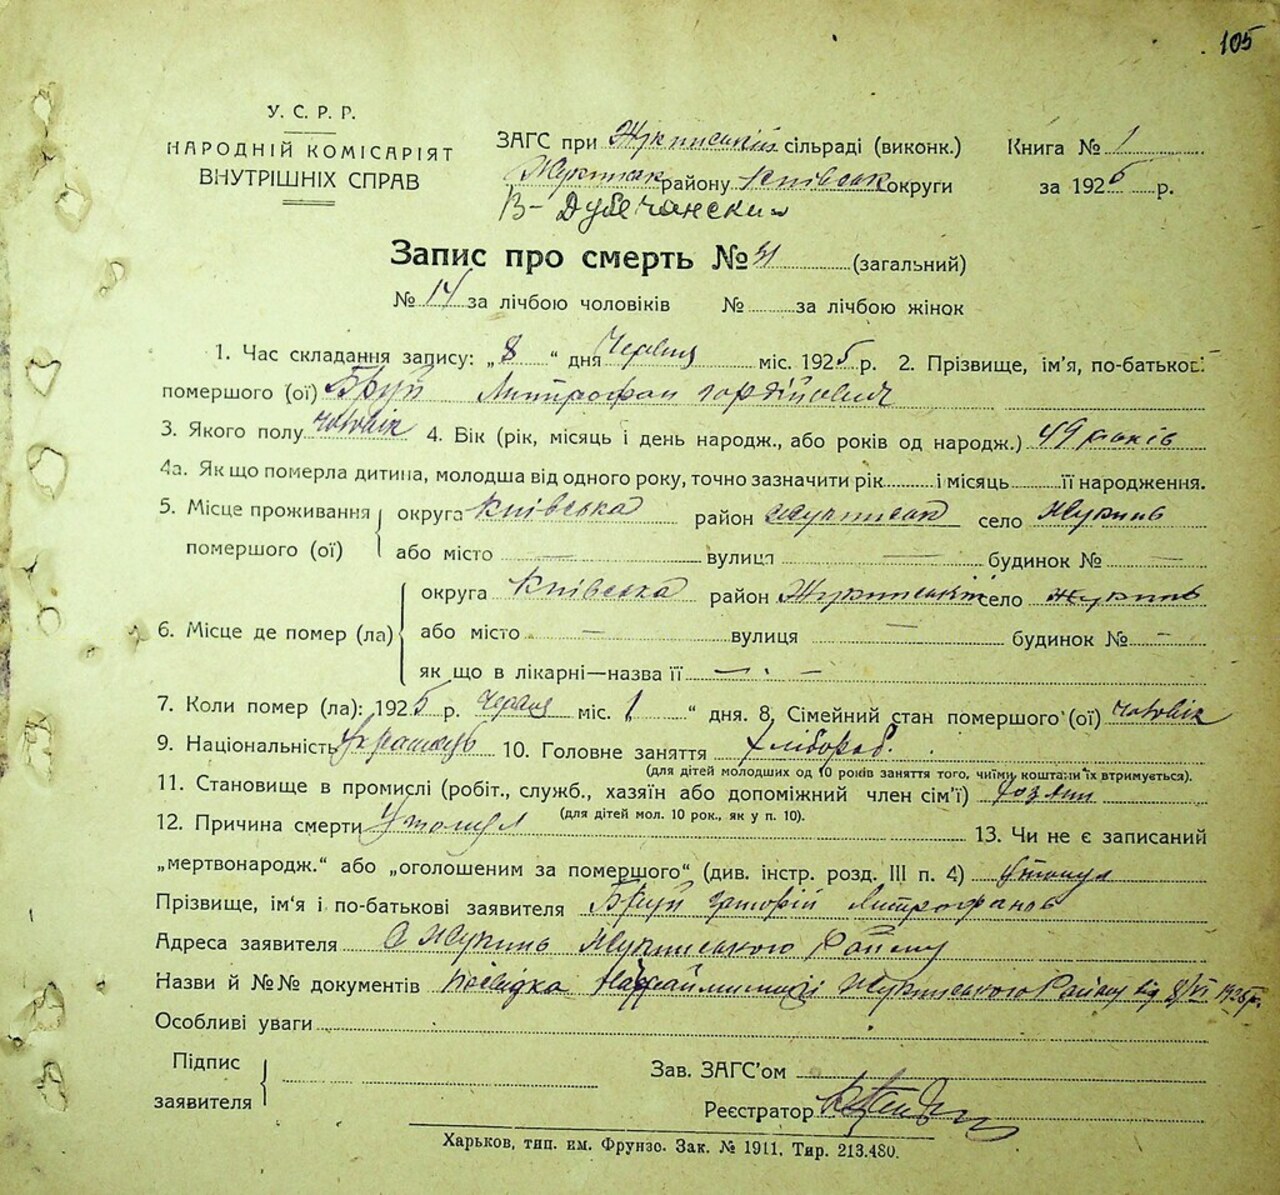 105
У. С. Р. Р.
НАРОДНІЙ КОМІСАРІЯТ
ВНУТРІШНІХ СПРАВ
ЗАГС при Жукинській сільраді (виконк.) Книга № 1
Жукинськ району Київськ округи за 1925 р.
В-Дубечанский
Запис про смерть № 31 (загальний)
№ 14 за лічбою чоловіків № за лічбою жінок
1. Час складання запису: „8“ дня Червня міс. 1925 р. 2. Прізвище, ім'я, по-батькові
помершого (ої) Бруй Митрофан Гордійович
3. Якого полу чоловік 4. Вік (рік, місяць і день народж., або років од народж.) 49 років
4а. Як що померла дитина, молодша від одного року, точно зазначити рік і місяць її народження.
5. Місце проживання помершого (ої) округа Київська район Жукинськ село Жукинь
або місто — вулиця — будинок № —
6. Місце де помер (ла) округа Київська район Жукинський село Жукинь
або місто — вулиця — будинок № —
як що в лікарні—назва її — · —
7. Коли помер (ла): 1925 р. Червня міс. 1 “ дня. 8. Сімейний стан помершого (ої) чоловік
9. Національність Українець 10. Головне заняття хлібороб.
(для дітей молодших од 10 років заняття того, чиїми коштами їх втримується).
11. Становище в промислі (робіт., служб., хазяїн або допоміжний член сім'ї) хозяин
(для дітей мол. 10 рок., як у п. 10).
12. Причина смерти Утонул 13. Чи не є записаний
„мертвонародж.“ або „оголошеним за помершого“ (див. інстр. розд. III п. 4) Утонул
Прізвище, ім'я і по-батькові заявителя Бруй Григорій Митрофанов
Адреса заявителя С Жукинь Жукинського Району
Назви й №№ документів Посвідка Жукинського Району від 8/VI 1925 р.
Особливі уваги
Підпис заявителя
Зав. ЗАГС'ом
Реєстратор
Харьков, тип. им. Фрунзо. Зак. № 1911. Тир. 213.480.